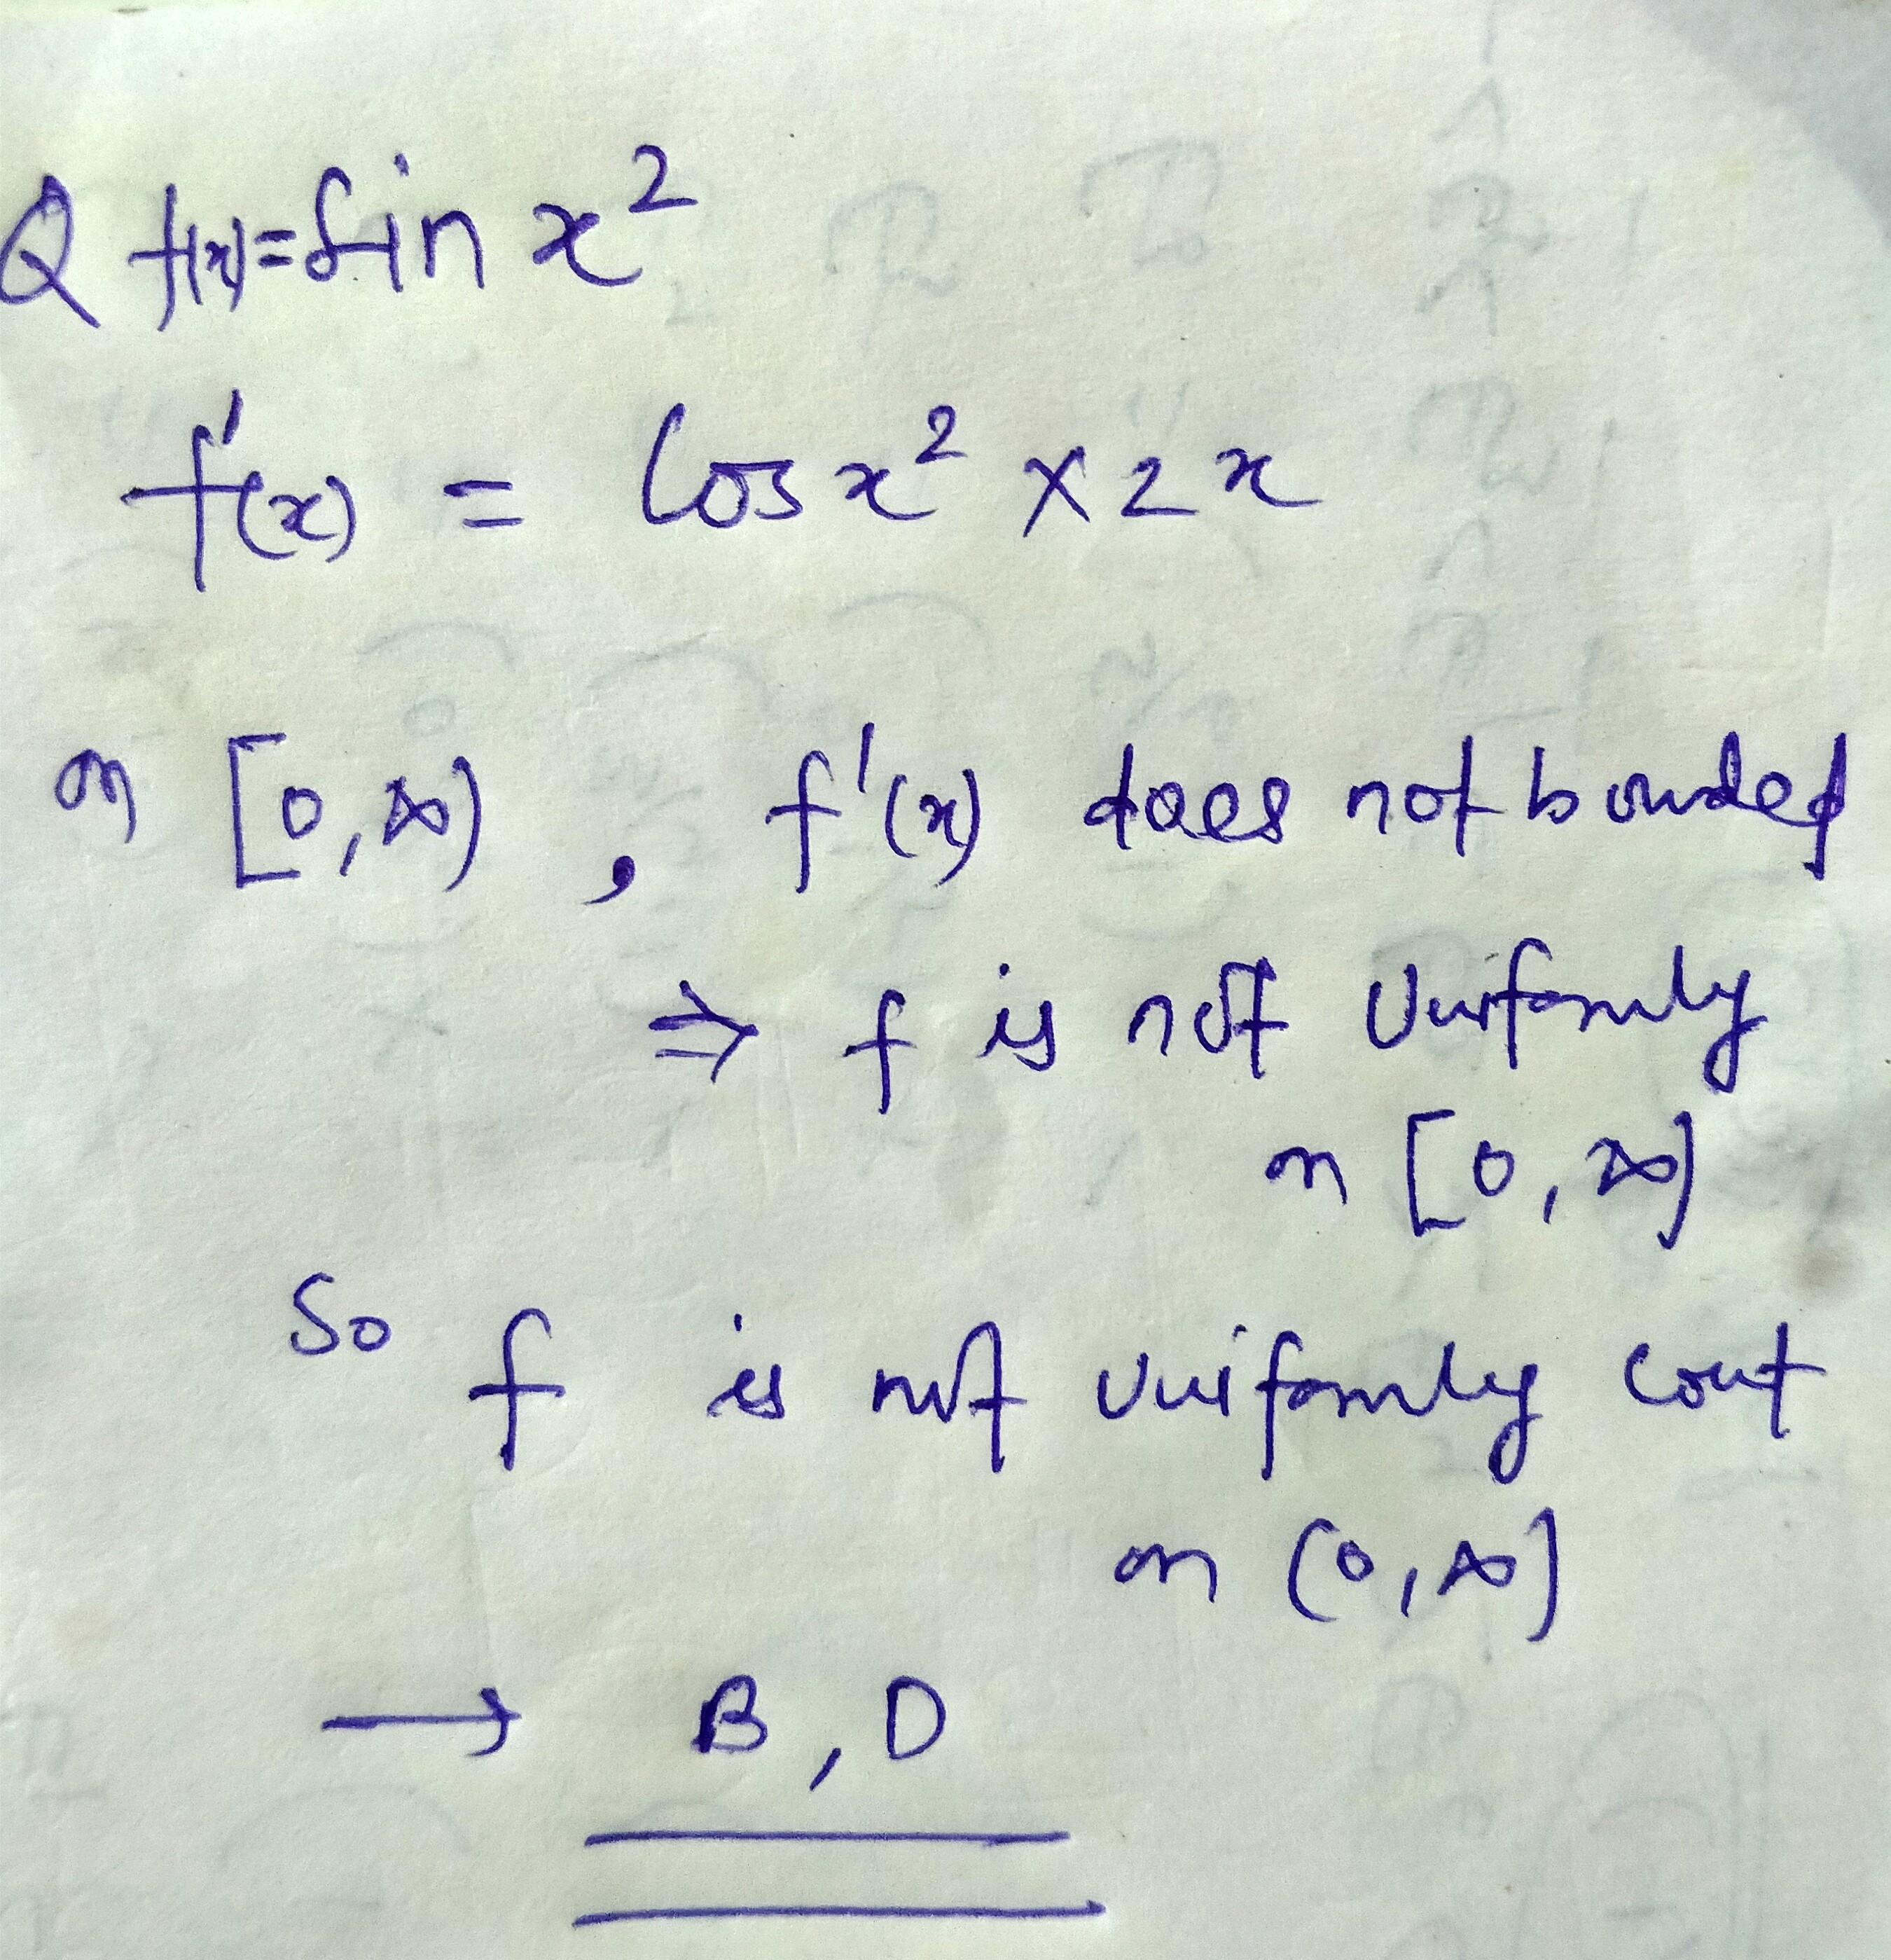 Q f(x)=sin x²
f'(x) = cos x² × 2x
on [0,∞) , f'(x) does not bounded
⇒ f is not Uniformly
on [0,∞)
So f is not uniformly cont
on (0,∞]
→ B, D